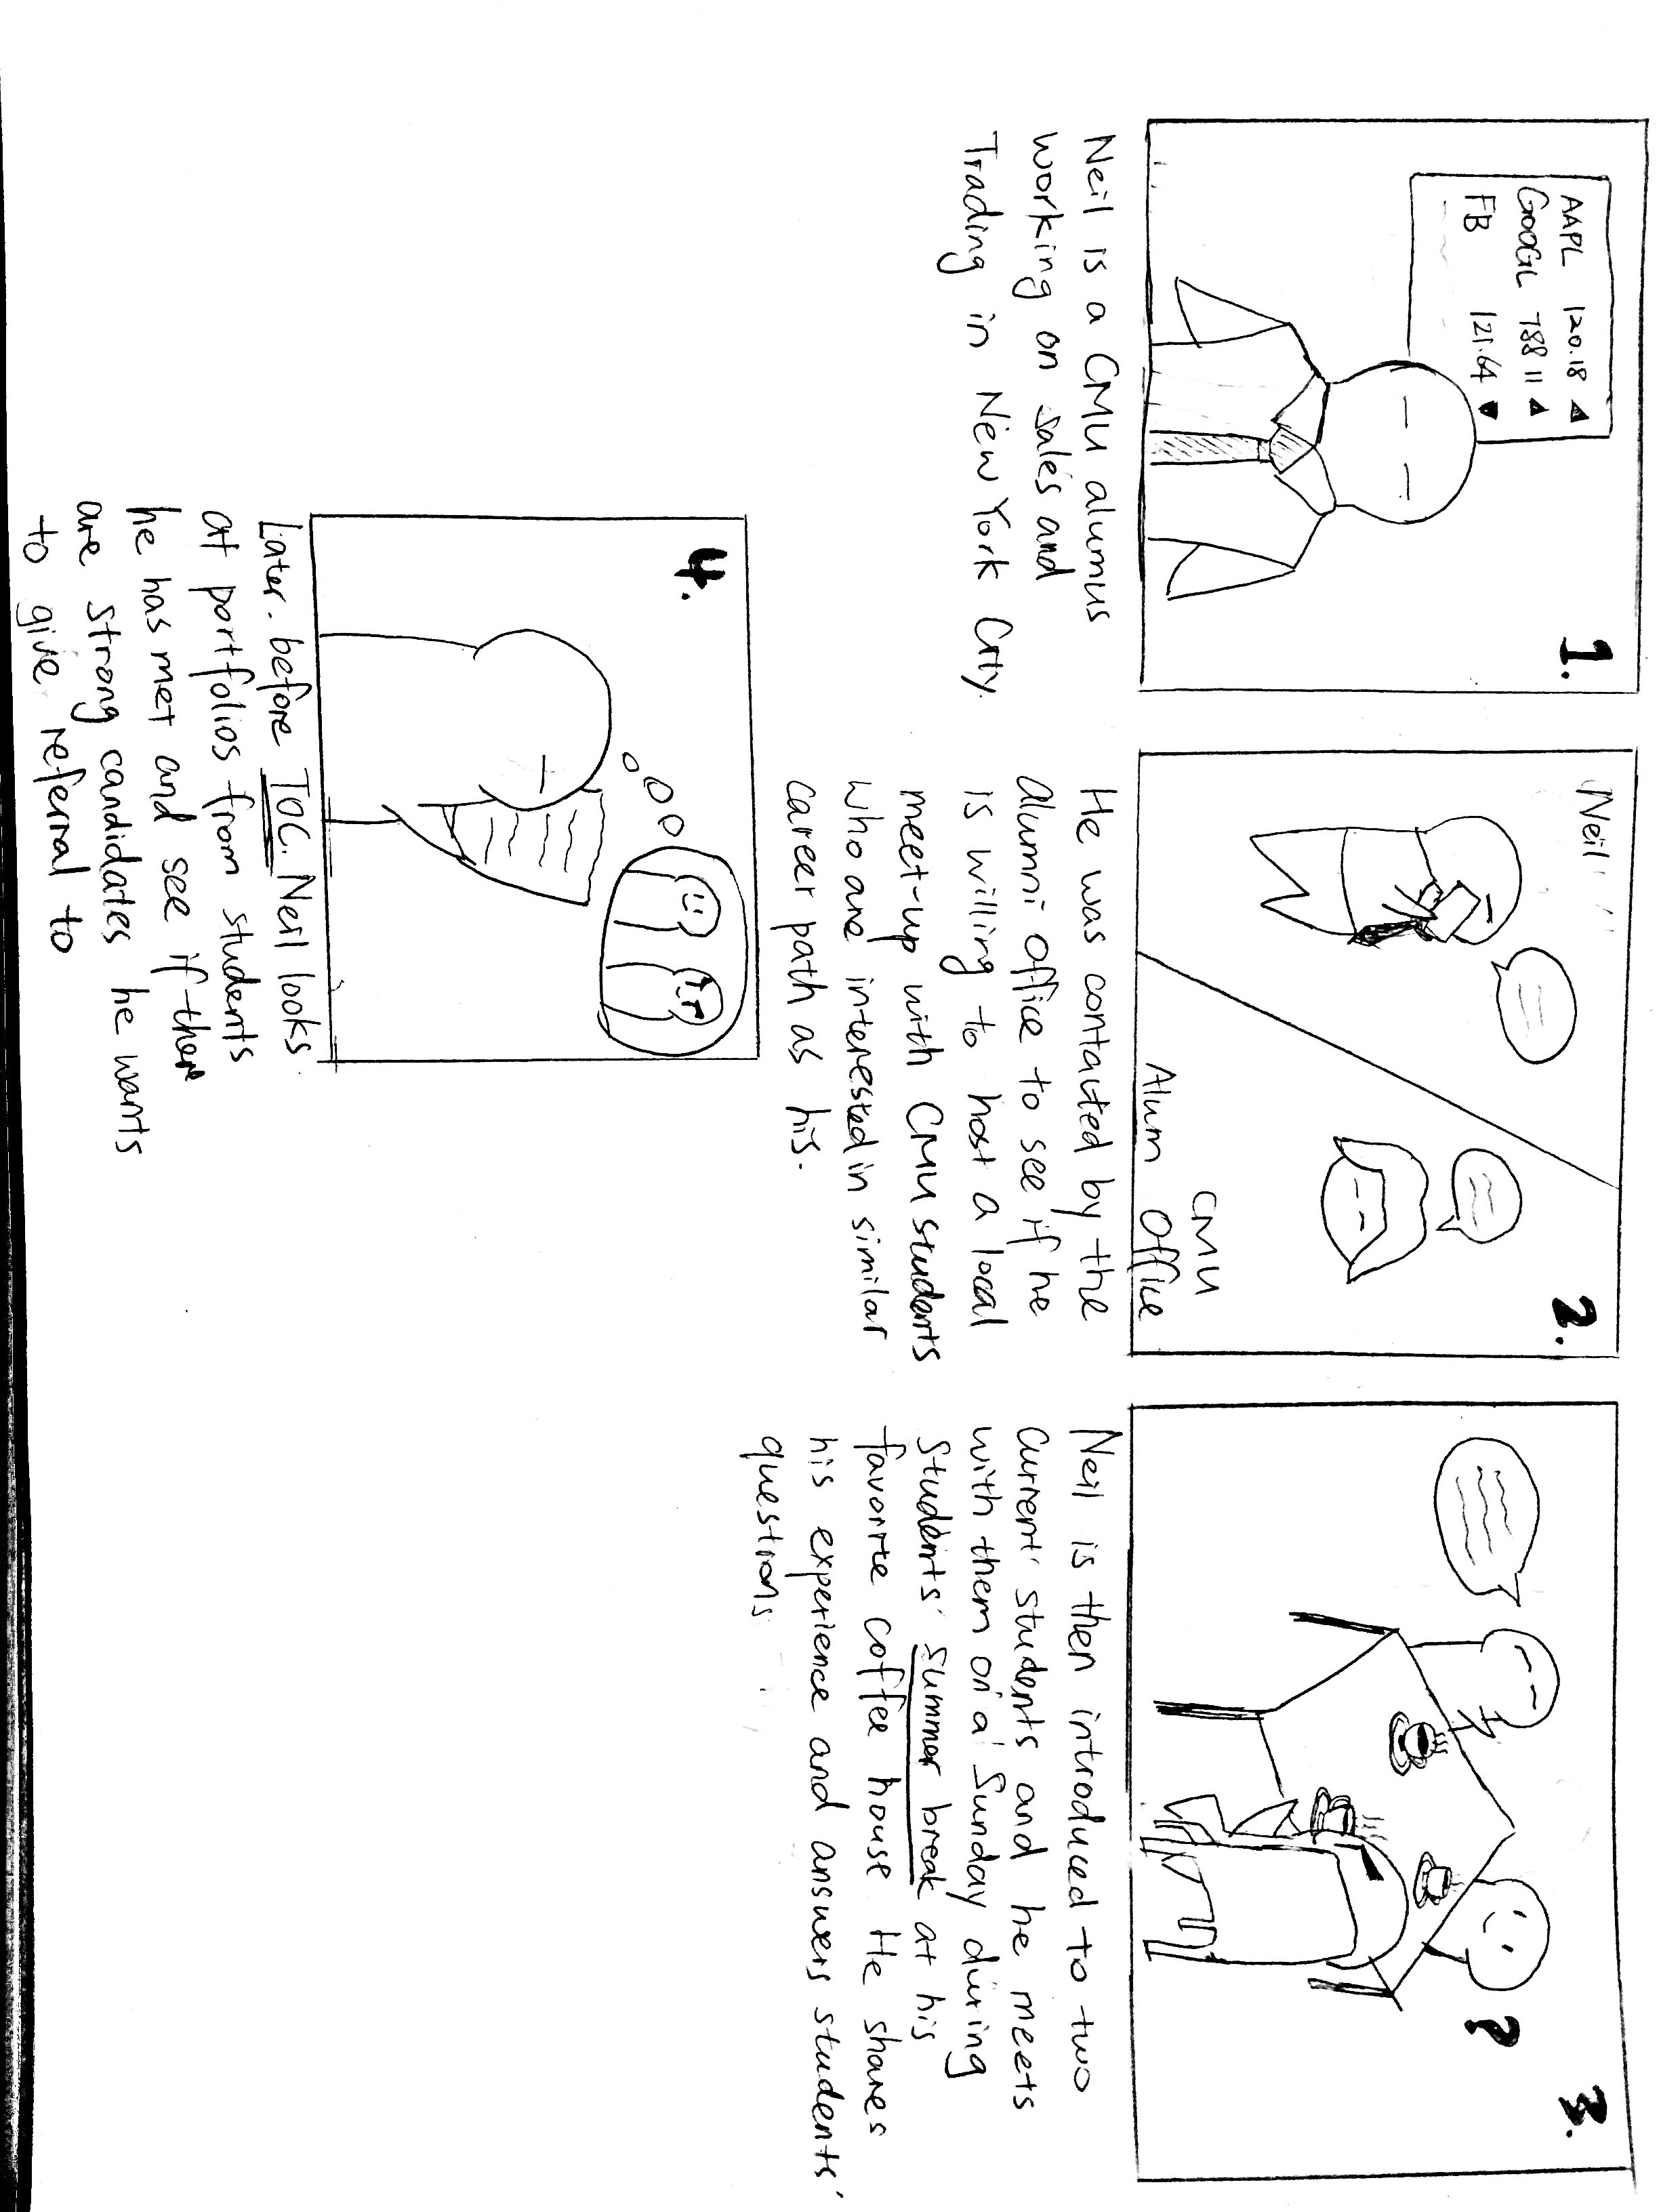 1.
AAPL 120.18 ▲
GOOGL 788 11 ▲
FB 121.64 ▼
Neil is a CMU alumus
working on sales and
Trading in New York City.
2.
Neil
CMU
Alum Office
He was contacted by the
alumni office to see if he
is willing to host a local
meet-up with CMU students
who are interested in similar
career path as his.
3.
?
Neil is then introduced to two
current students and he meets
with them on a Sunday during
students' summer break at his
favorite coffee house He shares
his experience and answers students'
questions
4.
Later. before TOC. Neil looks
at portfolios from students
he has met and see if there
are strong candidates he wants
to give referral to